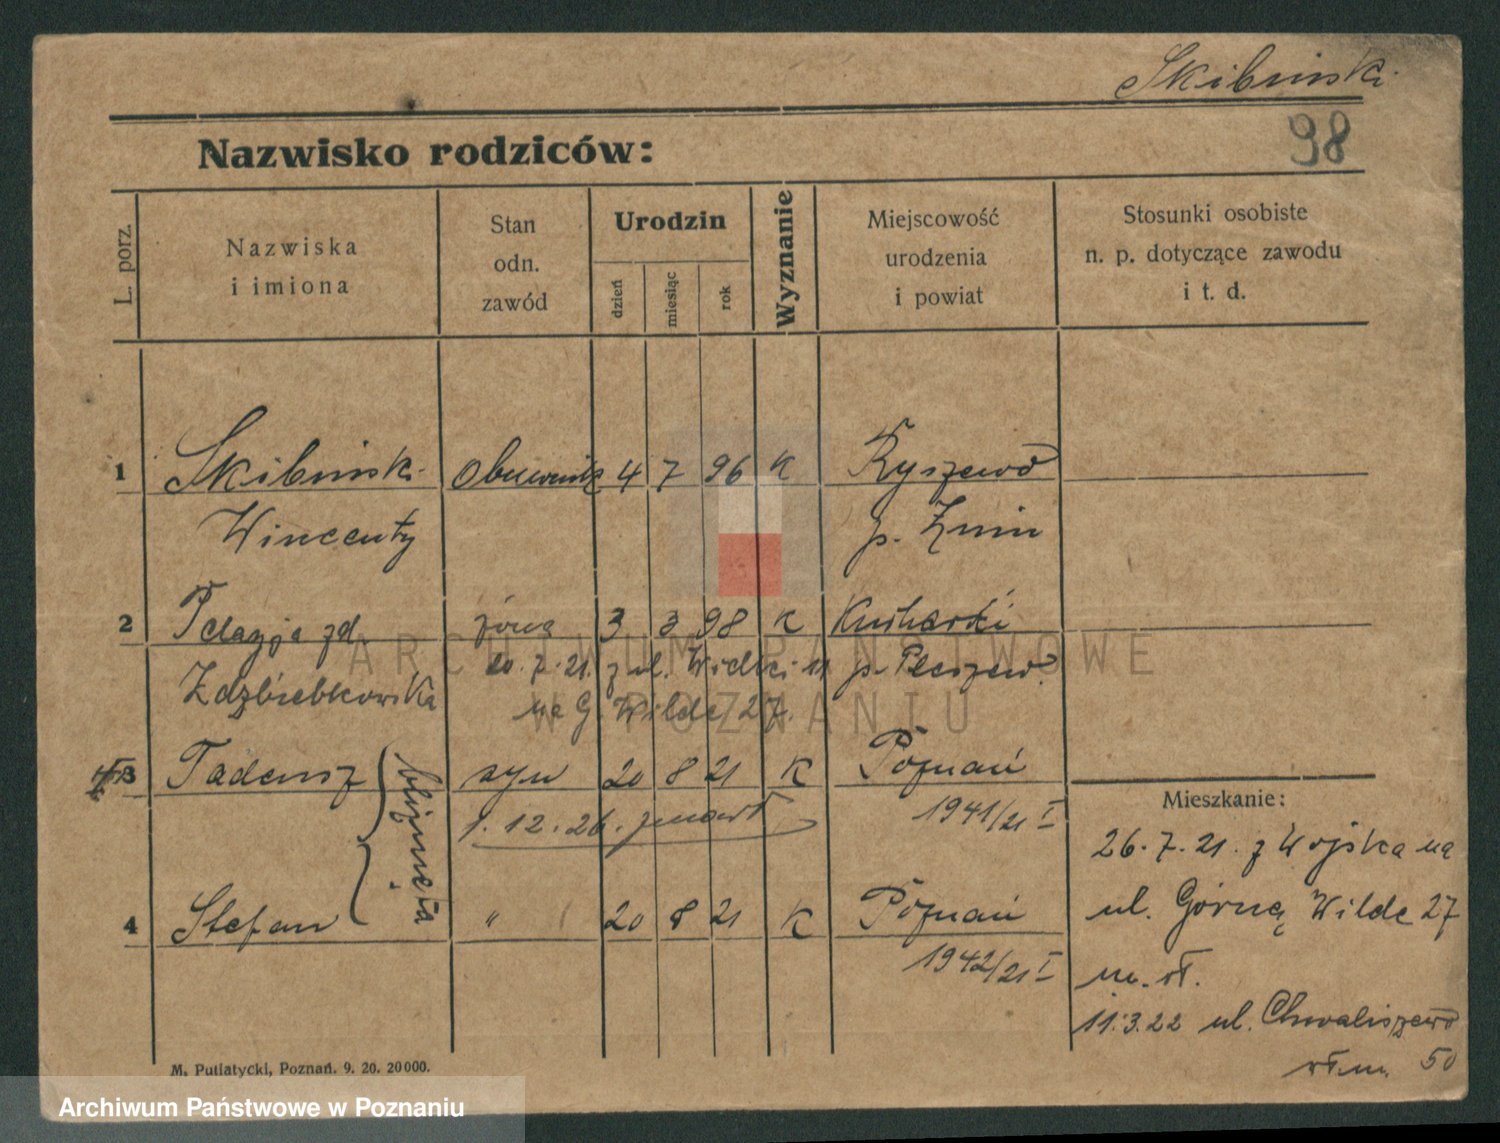 Skibinski
98
Nazwisko rodziców:
L. porz.
Nazwiska
i imiona
Stan
odn.
zawód
Urodzin
dzień
miesiąc
rok
Wyznanie
Miejscowość
urodzenia
i powiat
Stosunki osobiste
n. p. dotyczące zawodu
i t. d.
1 Skibinski obuwnik 4 7 96 K Ryszewo
Wincenty p. Żnin
2 Pelagja zd żona 3 3 98 K Kucharki
Zdziebkowska 20.7.21. z ul. Wielki 11 p. Pleszew.
na G. Wilde 27.
3 Tadeusz syn 20 8 21 K Poznań
bliźnięta
1.12.26. zmarł 1941/21 I
4 Stefan " 20 8 21 K Poznań
1942/21 I
Mieszkanie:
26.7.21. z Wojska na
ul. Górną Wilde 27
m. wł.
11.3.22 ul. Chwaliszewo
wł. m. 50
M. Putiatycki, Poznań. 9. 20. 20000.
ARCHIWUM PAŃSTWOWE
W POZNANIU
Archiwum Państwowe w Poznaniu